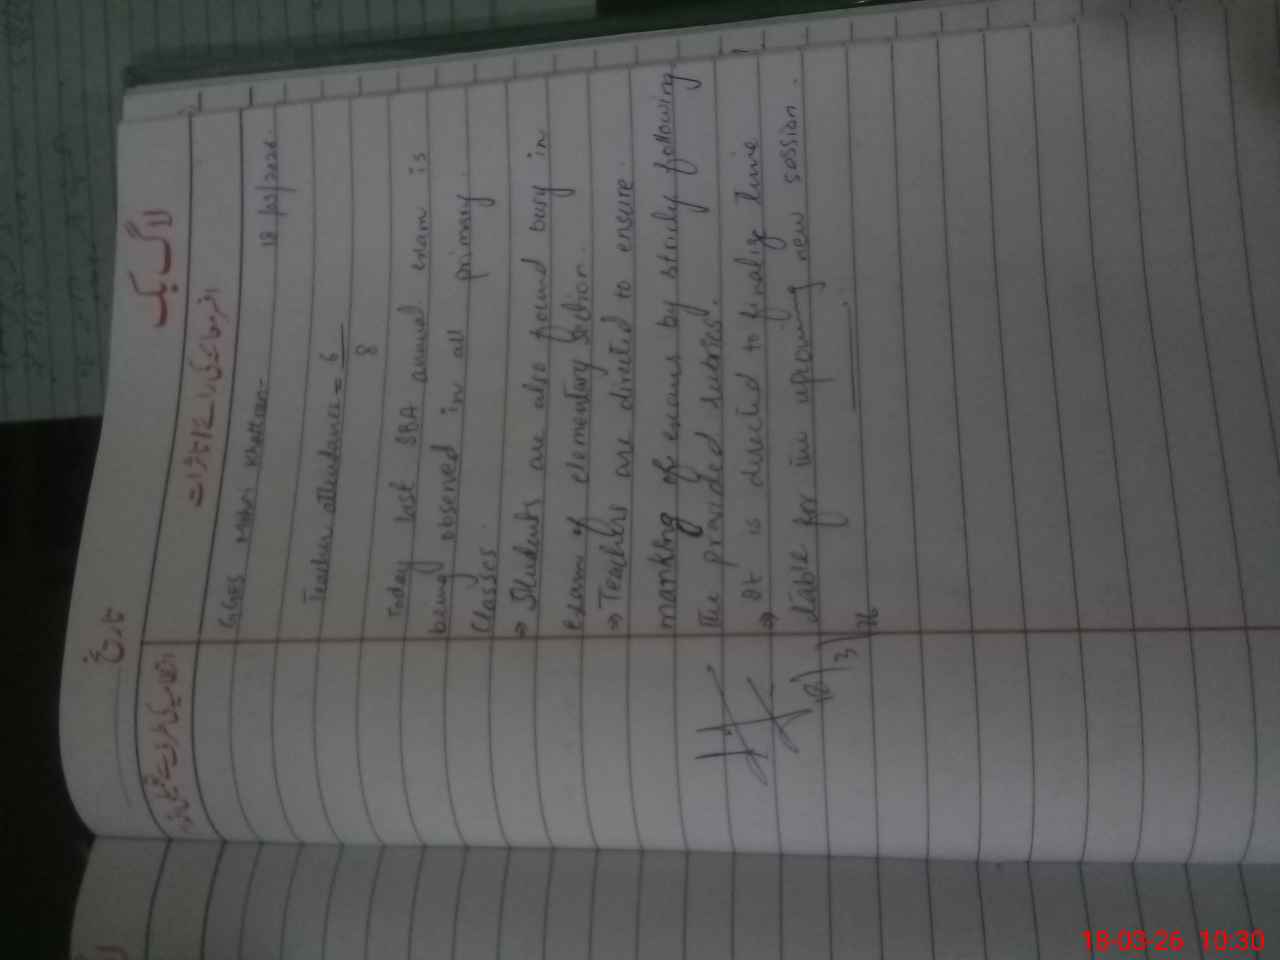 لاگ بک
تاریخ
GGES Mohri Khattran
18/03/2026.
Teacher attendance = 6/8
Today last SBA annual exam is
being observed in all primary
Classes.
→ Students are also found busy in
exam of elementary Section.
→ Teachers are directed to ensure
marking of exams by strictly following
the provided rubrics.
→ It is directed to finalize time
table for the upcoming new session.
18/3/26
18-03-26 10:30